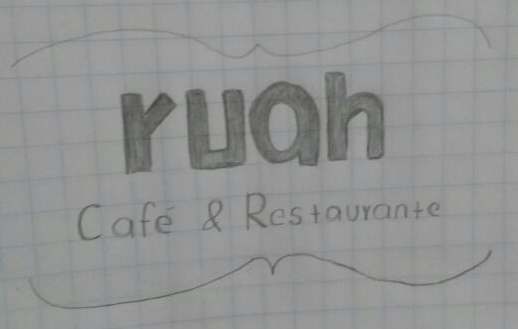 ruah
Café & Restaurante